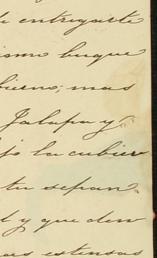 entregarte
ismo buque
bierno; mas
Jalapa y
jo la cubier
tu separa
d y que den
as estensas